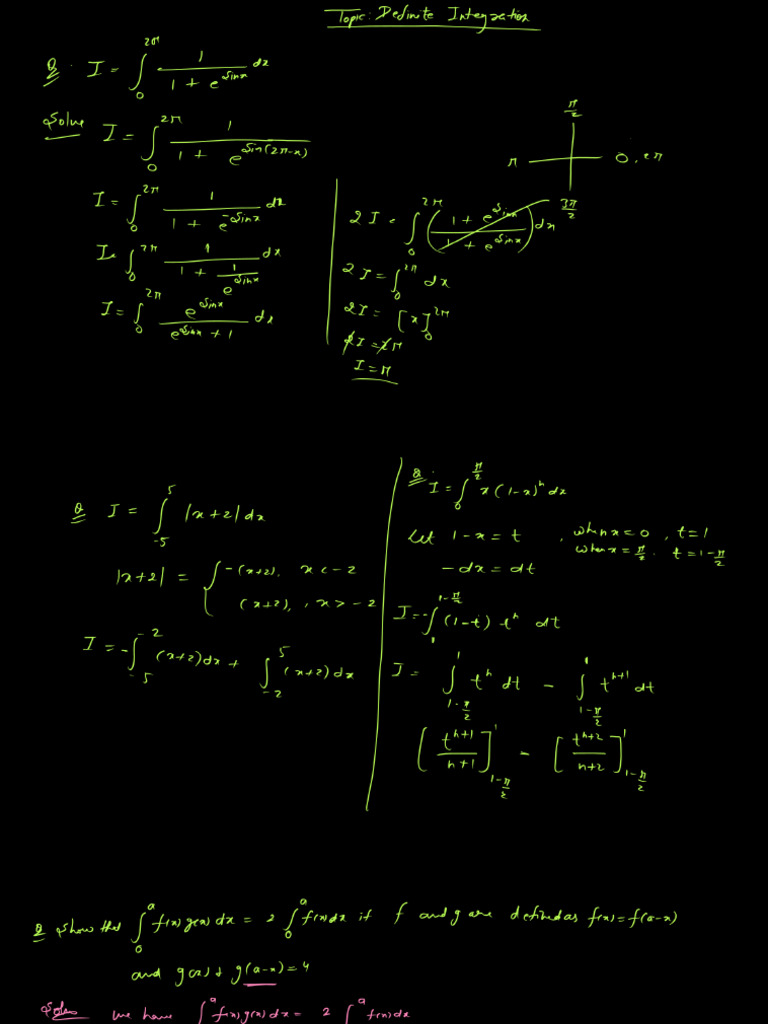 Topic: Definite Integration
Q. I = ∫₀^{2π} 1/(1 + e^{sinx}) dx
Solve I = ∫₀^{2π} 1/(1 + e^{sin(2π-x)})
I = ∫₀^{2π} 1/(1 + e^{-sinx}) dx
I = ∫₀^{2π} 1/(1 + 1/e^{sinx}) dx
I = ∫₀^{2π} e^{sinx}/(e^{sinx} + 1) dx
π/2
π 0, 2π
3π/2
2I = ∫₀^{2π} ((1 + e^{sinx})/(1 + e^{sinx})) dx
2I = ∫₀^{2π} dx
2I = [x]₀^{2π}
2I = 2π
I = π
Q I = ∫_{-5}^{5} |x+2| dx
|x+2| = { -(x+2), x < -2
(x+2), x > -2
I = -∫_{-5}^{-2} (x+2) dx + ∫_{-2}^{5} (x+2) dx
Q. I = ∫₀^{π/2} x(1-x)^n dx
Let 1-x = t , when x = 0 , t = 1
when x = π/2 . t = 1 - π/2
-dx = dt
I = -∫₁^{1-π/2} (1-t) t^n dt
I = ∫_{1-π/2}^{1} t^n dt - ∫_{1-π/2}^{1} t^{n+1} dt
[t^{n+1}/(n+1)]_{1-π/2}^{1} - [t^{n+2}/(n+2)]_{1-π/2}^{1}
Q Show that ∫₀^a f(x) g(x) dx = 2 ∫₀^a f(x) dx if f and g are defined as f(x) = f(a-x)
and g(x) + g(a-x) = 4
We have ∫^a f(x) g(x) dx = 2 ∫^a f(x) dx